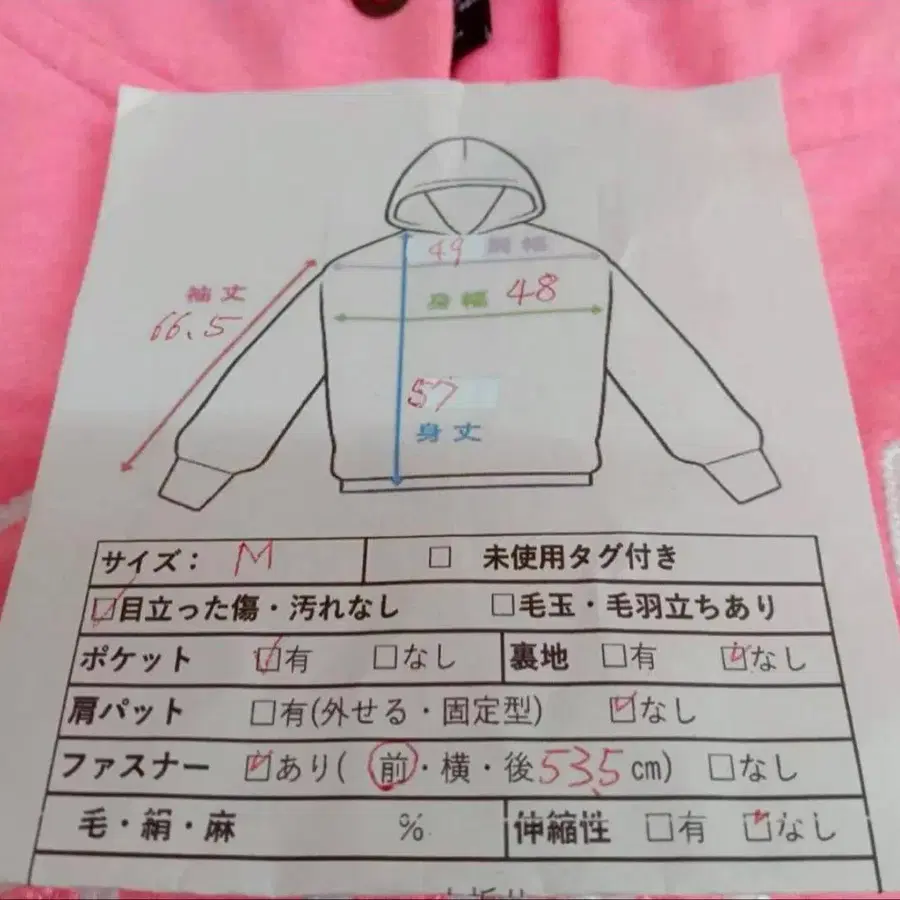 49 肩幅
袖丈
身幅 48
66.5
57
身丈
サイズ： M □ 未使用タグ付き
☑目立った傷・汚れなし □毛玉・毛羽立ちあり
ポケット ☑有 □なし 裏地 □有 ☑なし
肩パット □有(外せる・固定型) ☑なし
ファスナー ☑あり( 前・横・後53.5cm) □なし
毛・絹・麻 % 伸縮性 □有 ☑なし